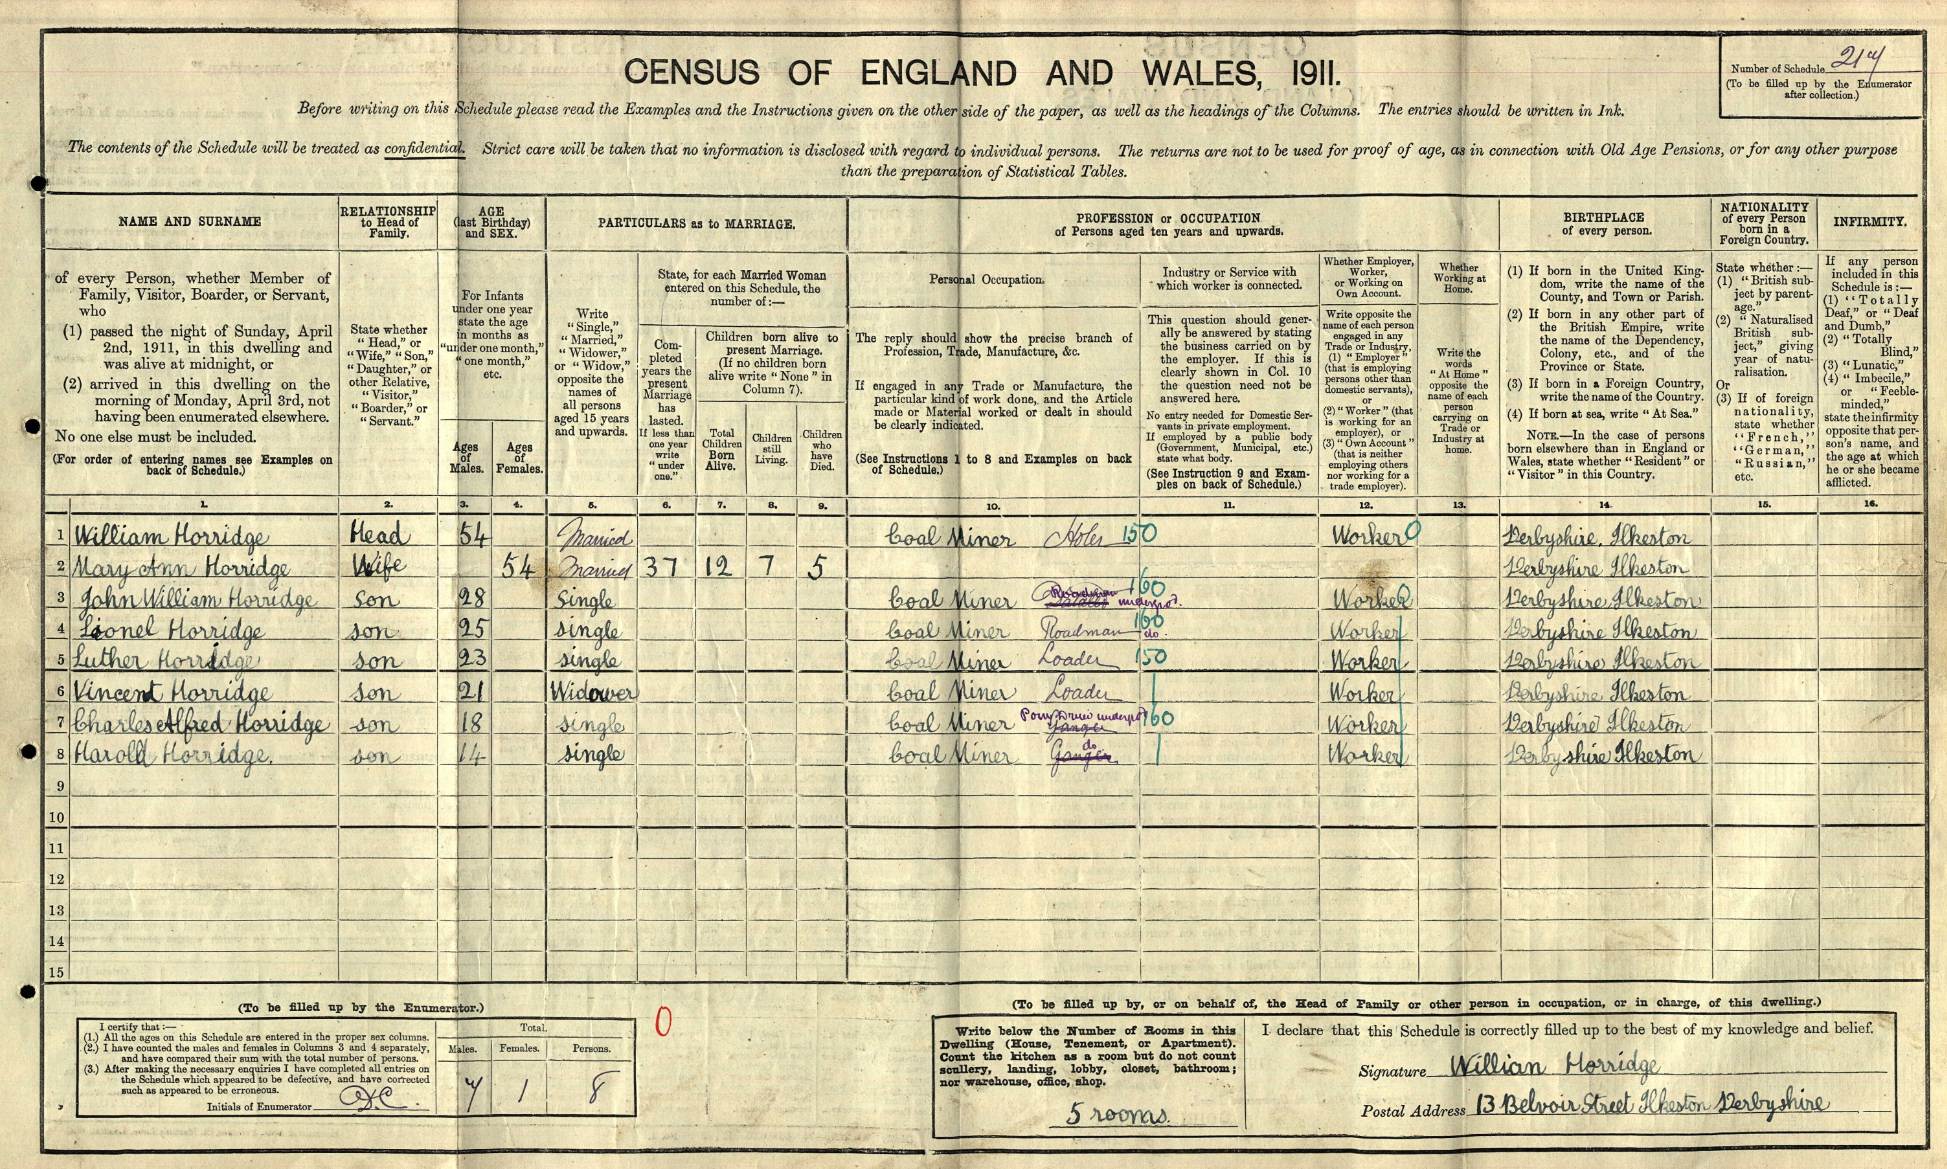 CENSUS OF ENGLAND AND WALES, 1911.
Number of Schedule 217
(To be filled up by the Enumerator
after collection.)
Before writing on this Schedule please read the Examples and the Instructions given on the other side of the paper, as well as the headings of the Columns. The entries should be written in Ink.
The contents of the Schedule will be treated as confidential. Strict care will be taken that no information is disclosed with regard to individual persons. The returns are not to be used for proof of age, as in connection with Old Age Pensions, or for any other purpose
than the preparation of Statistical Tables.
NAME AND SURNAME
of every Person, whether Member of
Family, Visitor, Boarder, or Servant,
who
(1) passed the night of Sunday, April
2nd, 1911, in this dwelling and
was alive at midnight, or
(2) arrived in this dwelling on the
morning of Monday, April 3rd, not
having been enumerated elsewhere.
No one else must be included.
(For order of entering names see Examples on
back of Schedule.)
RELATIONSHIP
to Head of
Family.
State whether
"Head," or
"Wife," "Son,"
"Daughter," or
other Relative,
"Visitor,"
"Boarder," or
"Servant."
AGE
(last Birthday)
and SEX.
For Infants
under one year
state the age
in months as
"under one month,"
"one month,"
etc.
Ages
of
Males.
Ages
of
Females.
PARTICULARS as to MARRIAGE.
Write
"Single,"
"Married,"
"Widower,"
or "Widow,"
opposite the
names of
all persons
aged 15 years
and upwards.
State, for each Married Woman
entered on this Schedule, the
number of:—
Com-
pleted
years the
present
Marriage
has
lasted.
If less than
one year
write
"under
one."
Children born alive to
present Marriage.
(If no children born
alive write "None" in
Column 7).
Total
Children
Born
Alive.
Children
still
Living.
Children
who
have
Died.
PROFESSION or OCCUPATION
of Persons aged ten years and upwards.
Personal Occupation.
The reply should show the precise branch of
Profession, Trade, Manufacture, &c.
If engaged in any Trade or Manufacture, the
particular kind of work done, and the Article
made or Material worked or dealt in should
be clearly indicated.
(See Instructions 1 to 8 and Examples on back
of Schedule.)
Industry or Service with
which worker is connected.
This question should gener-
ally be answered by stating
the business carried on by
the employer. If this is
clearly shown in Col. 10
the question need not be
answered here.
No entry needed for Domestic Ser-
vants in private employment.
If employed by a public body
(Government, Municipal, etc.)
state what body.
(See Instruction 9 and Exam-
ples on back of Schedule.)
Whether Employer,
Worker,
or Working on
Own Account.
Write opposite the
name of each person
engaged in any
Trade or Industry,
(1) "Employer"
(that is employing
persons other than
domestic servants),
or
(2) "Worker" (that
is working for an
employer), or
(3) "Own Account"
(that is neither
employing others
nor working for a
trade employer).
Whether
Working at
Home.
Write the
words
"At Home"
opposite the
name of each
person
carrying on
Trade or
Industry at
home.
BIRTHPLACE
of every person.
(1) If born in the United King-
dom, write the name of the
County, and Town or Parish.
(2) If born in any other part of
the British Empire, write
the name of the Dependency,
Colony, etc., and of the
Province or State.
(3) If born in a Foreign Country,
write the name of the Country.
(4) If born at sea, write "At Sea."
NOTE.—In the case of persons
born elsewhere than in England or
Wales, state whether "Resident" or
"Visitor" in this Country.
NATIONALITY
of every Person
born in a
Foreign Country.
State whether :—
(1) "British sub-
ject by parent-
age."
(2) "Naturalised
British sub-
ject," giving
year of natu-
ralisation.
Or
(3) If of foreign
nationality,
state whether
"French,"
"German,"
"Russian,"
etc.
INFIRMITY.
If any person
included in this
Schedule is :—
(1) "Totally
Deaf," or "Deaf
and Dumb,"
(2) "Totally
Blind,"
(3) "Lunatic,"
(4) "Imbecile,"
or "Feeble-
minded,"
state the infirmity
opposite that per-
son's name, and
the age at which
he or she became
afflicted.
1. 2. 3. 4. 5. 6. 7. 8. 9. 10. 11. 12. 13. 14. 15. 16.
1 William Horridge Head 54 Married Coal Miner Holer 150 Worker 0 Derbyshire. Ilkeston
2 Mary Ann Horridge Wife 54 Married 37 12 7 5 Derbyshire Ilkeston
3 John William Horridge son 28 Single Coal Miner Roadman undergd. 160 Worker Derbyshire Ilkeston
4 Lionel Horridge son 25 single Coal Miner Roadman do. 160 Worker Derbyshire Ilkeston
5 Luther Horridge son 23 single Coal Miner Loader 150 Worker Derbyshire Ilkeston
6 Vincent Horridge son 21 Widower Coal Miner Loader Worker Derbyshire Ilkeston
7 Charles Alfred Horridge son 18 single Coal Miner Pony Driver undergd Ganger 160 Worker Derbyshire Ilkeston
8 Harold Horridge. son 14 single Coal Miner do Ganger Worker Derbyshire Ilkeston
9
10
11
12
13
14
15
(To be filled up by the Enumerator.)
I certify that :—
(1.) All the ages on this Schedule are entered in the proper sex columns.
(2.) I have counted the males and females in Columns 3 and 4 separately,
and have compared their sum with the total number of persons.
(3.) After making the necessary enquiries I have completed all entries on
the Schedule which appeared to be defective, and have corrected
such as appeared to be erroneous.
Initials of Enumerator
Total.
Males. Females. Persons.
7 1 8
0
(To be filled up by, or on behalf of, the Head of Family or other person in occupation, or in charge, of this dwelling.)
Write below the Number of Rooms in this
Dwelling (House, Tenement, or Apartment).
Count the kitchen as a room but do not count
scullery, landing, lobby, closet, bathroom;
nor warehouse, office, shop.
5 rooms.
I declare that this Schedule is correctly filled up to the best of my knowledge and belief.
Signature William Horridge
Postal Address 13 Belvoir Street Ilkeston Derbyshire